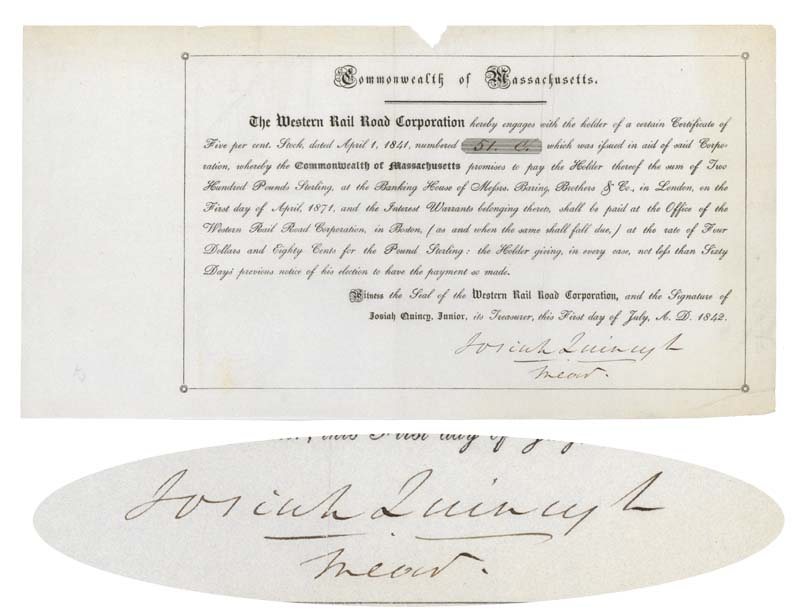 Commonwealth of Massachusetts.
The Western Rail Road Corporation hereby engages with the holder of a certain Certificate of
Five per cent. Stock, dated April 1, 1841, numbered 51. C. which was issued in aid of said Corpo-
ration, whereby the Commonwealth of Massachusetts promises to pay the Holder thereof the sum of Two
Hundred Pounds Sterling, at the Banking House of Messrs. Baring, Brothers & Co., in London, on the
First day of April, 1871, and the Interest Warrants belonging thereto, shall be paid at the Office of the
Western Rail Road Corporation, in Boston, (as and when the same shall fall due,) at the rate of Four
Dollars and Eighty Cents for the Pound Sterling: the Holder giving, in every case, not less than Sixty
Days previous notice of his election to have the payment so made.
Witness the Seal of the Western Rail Road Corporation, and the Signature of
Josiah Quincy, Junior, its Treasurer, this First day of July, A. D. 1842.
Josiah Quincy Jr
Treasr.
this First day of
Josiah Quincy Jr
Treasr.